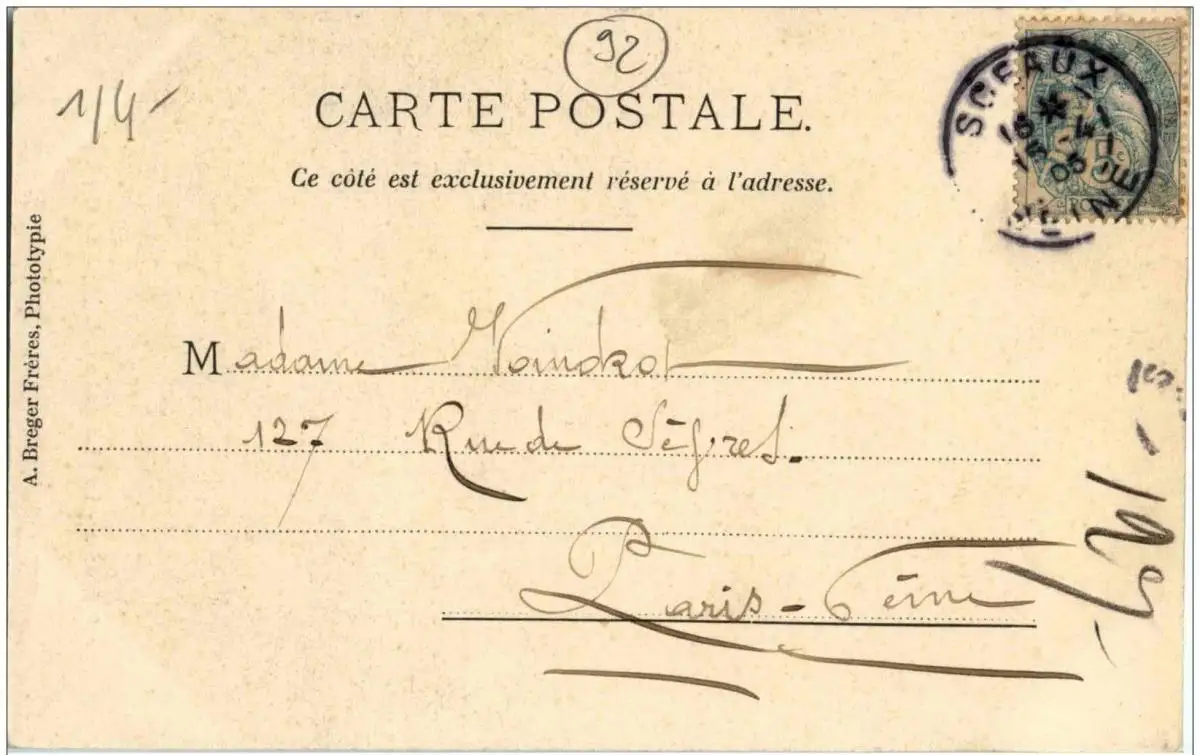 92
1/4-
CARTE POSTALE.
Ce côté est exclusivement réservé à l'adresse.
SCEAUX
SEINE
A. Breger Frères, Phototypie
Madame
127 Rue de Sègres.
Paris-Seine